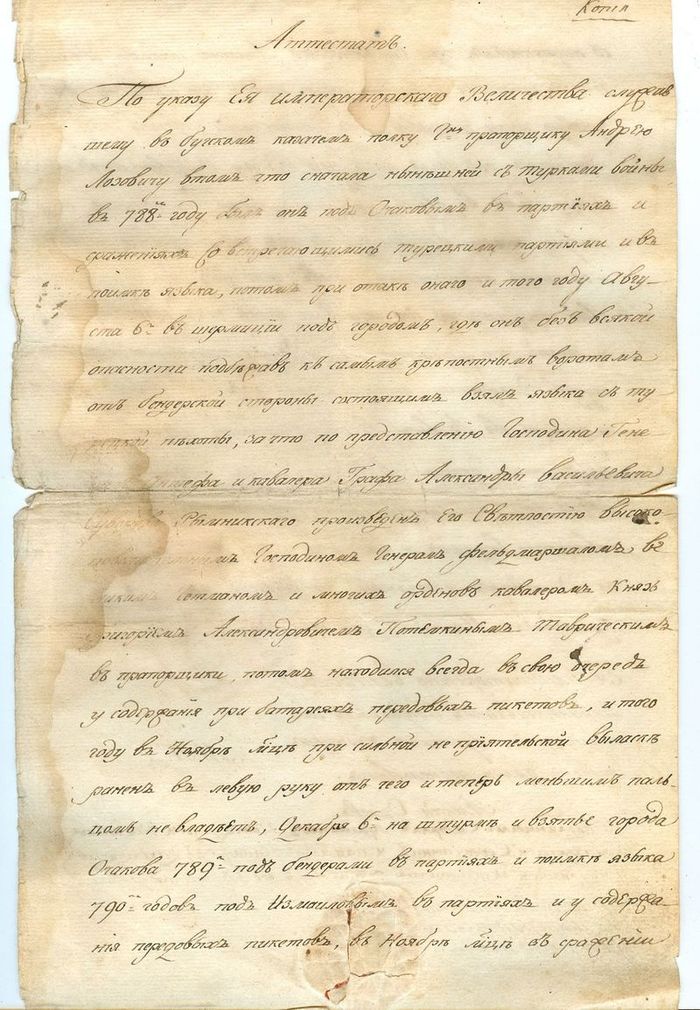 Копия
Аттестатъ.
По указу Ея императорскаго Величества служив
шему въ бугскомъ казачемъ полку Гнъ прапорщику Андрѣю
Лозовичу втомъ что сначала нынѣшней съ турками войны
въ 788м году былъ онъ подъ Очаковымъ въ партіяхъ и
сраженіяхъ со встречающимись турецкими партіями и въ
поимкѣ языка, потомъ при атакѣ онаго и того году Авгу-
ста 6г въ шермиціи подъ городомъ, гдѣ онъ безъ всякой
опасности подбѣжавъ къ самымъ крѣпостнымъ воротамъ
отъ бендерской стороны состоящимъ взялъ языка съ ту-
рецкой пѣхоты, за что по представленію Господина Гене-
и кавалера Графа Александры васильевича
Рымникскаго произведенъ Его Свѣтлостію высоко-
Господиномъ Генералъ фельдмаршаломъ ве
ликимъ Гетманомъ и многихъ орденовъ кавалеромъ Князь
Григоріемъ Александровичемъ Потемкинымъ Таврическимъ
въ прапорщики, потомъ находился всегда въ свою очередь
у содержанія при батареяхъ передовыхъ пикетовъ, и того
году въ Ноябрѣ мцѣ при сильной непріятельской выласкѣ
раненъ въ левую руку отъ чего и теперь меньшимъ паль-
цомъ не владѣетъ, Декабря 6г на штурмѣ и взятье города
Очакова 789г подъ бендерами въ партіяхъ и поимкѣ языка
790го годовъ подъ Измаиловымъ въ партіяхъ и у содержа
нія передовыхъ пикетовъ, въ Ноябрѣ мцѣ въ сраженіи